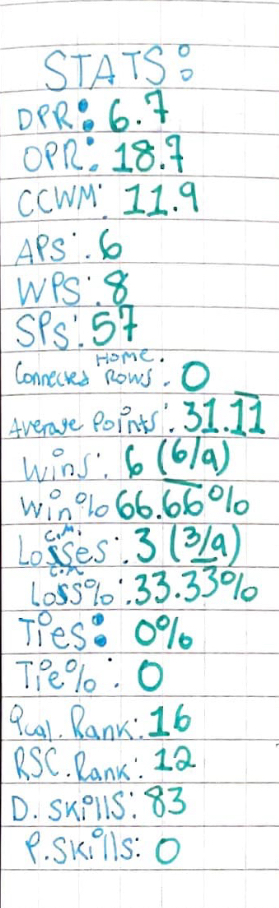 STATS:
DPR: 6.7
OPR: 18.7
CCWM: 11.9
APS: 6
WPS: 8
SPs: 57
Home.
Connected Rows: 0
Average Points: 31.11
Wins: 6 (6/9)
Win% 66.66%
C.M.
Losses: 3 (3/9)
C.M.
Loss%: 33.33%
Ties: 0%
Tie%: 0
Qual. Rank: 16
RSC. Rank: 12
D. Skills: 83
P. Skills: 0